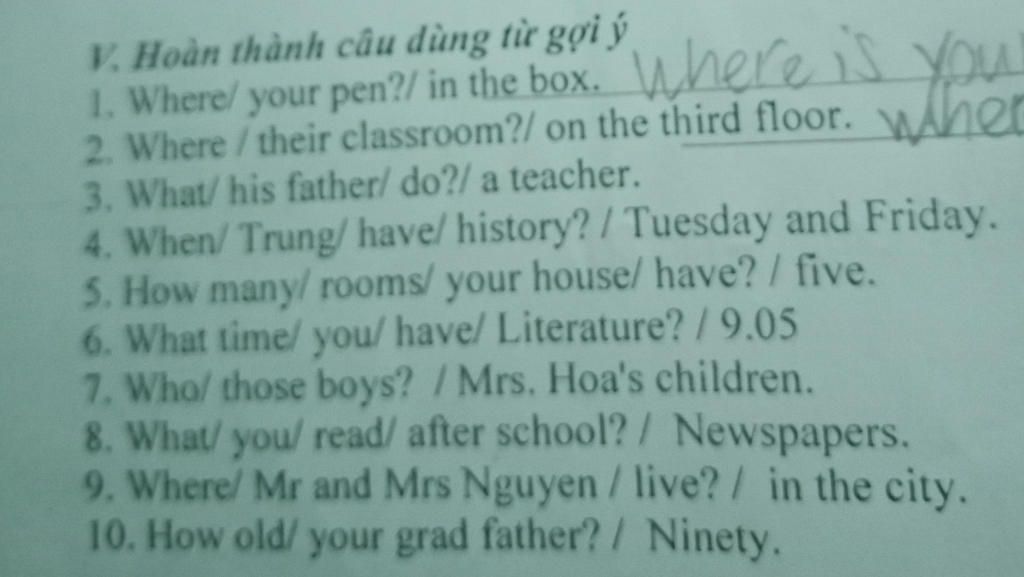 V. Hoàn thành câu dùng từ gợi ý
1. Where/ your pen?/ in the box. Where is you
2. Where / their classroom?/ on the third floor. wher
3. What/ his father/ do?/ a teacher.
4. When/ Trung/ have/ history? / Tuesday and Friday.
5. How many/ rooms/ your house/ have? / five.
6. What time/ you/ have/ Literature? / 9.05
7. Who/ those boys? / Mrs. Hoa's children.
8. What/ you/ read/ after school? / Newspapers.
9. Where/ Mr and Mrs Nguyen / live? / in the city.
10. How old/ your grad father? / Ninety.